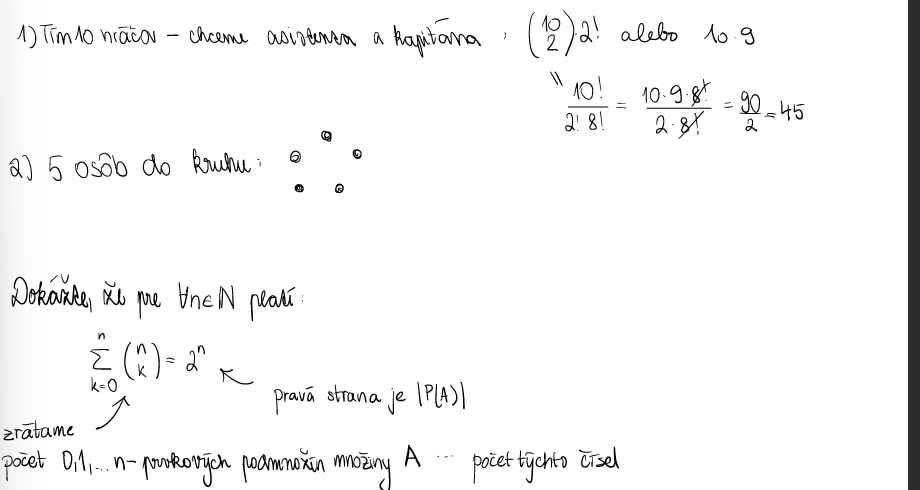 1) Tím 10 hráčov – chceme asistenta a kapitána : (10 2)·2! alebo 10·9
" 10!/2! 8! = 10·9·8!/2·8! = 90/2 = 45
2) 5 osôb do kruhu:
Dokážte, že pre ∀n∈N platí:
n∑k=0 (n k) = 2ⁿ
pravá strana je |P(A)|
zrátame
počet 0,1,... n-prvkových podmnožín množiny A ... počet týchto čísel